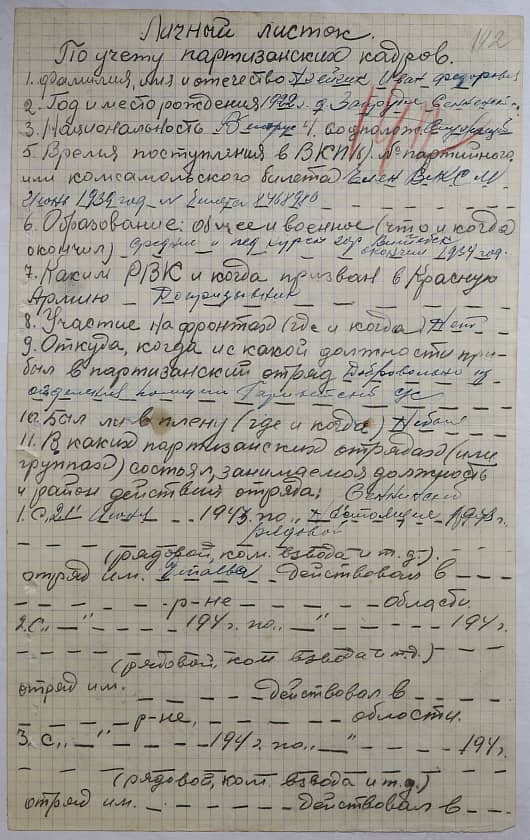 142
Личный листок.
По учету партизанских кадров.
1. фамилия, имя и отечество Иван Федорович
2. Год и место рождения 1922 г. д.
3. Национальность 4. соцполож.
5. Время поступления в ВКП(б). № партийного
или комсомольского билета Член ВЛКСМ
Июнь 1939 год № билета 8768910
6. Образование: общее и военное (что и когда
окончил) среднее и пед курсы гор Витебск окончил 1939 год.
7. Каким РВК и когда призван в Красную
Армию – Допризывник
8. Участие на фронтах (где и когда) Нет
9. Откуда, когда и с какой должности при-
был в партизанский отряд Добровольно из
отделения полиции с/с
10. Был ли в плену (где и когда) Не был
11. В каких партизанских отрядах (или
группах) состоял, занимаемая должность
и район действия отряда: Сенненский
1. С „21“ Июня 1943 г. по 1943 г.
Рядовой
(рядовой, ком. взвода и т.д.).
отряд им. Чапаева действовал в
р-не области.
2. С „ — “ 194 г. по „ — “ 194 г.
(рядовой, ком взвода и т.д.)
отряд им. действовал в
р-не, области.
3. С „ — “ 194 г. по „ — “ 194 г.
(рядовой, ком. взвода и т.д.)
отряд им. действовал в